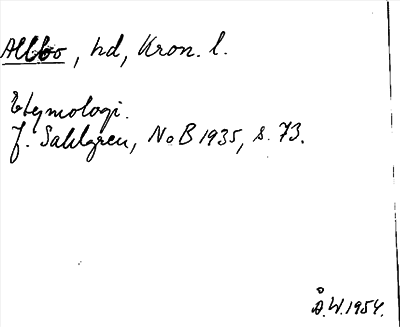 Allbo, hd, Kron. l.
Etymologi.
J. Sahlgren, NoB 1935, s. 73.
Å.W. 1954.